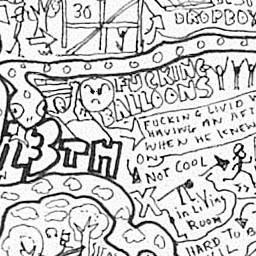 30
DROPBOX
FUCKING
BALLOONS
FUCKIN G LIVID W
HAVING AN AF
WHEN HE KNEW
ON
NOT COOL
13TH
LIVING
in Living
ROOM
HARD TO B